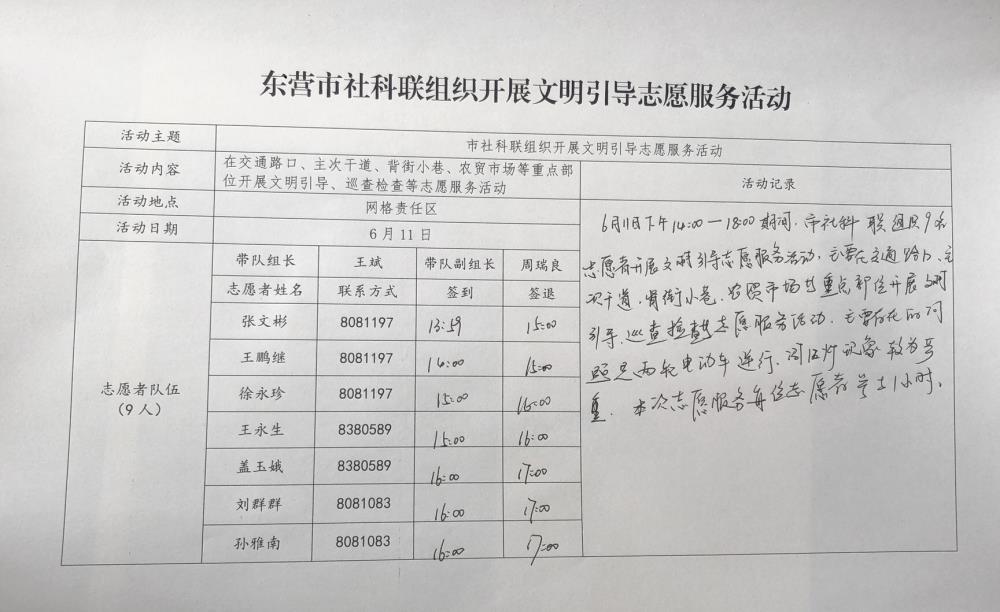 东营市社科联组织开展文明引导志愿服务活动
活动主题 市社科联组织开展文明引导志愿服务活动
活动内容 在交通路口、主次干道、背街小巷、农贸市场等重点部
位开展文明引导、巡查检查等志愿服务活动
活动记录
活动地点 网格责任区
活动日期 6月11日
志愿者队伍
(9人)
带队组长 王斌 带队副组长 周瑞良
志愿者姓名 联系方式 签到 签退
张文彬 8081197 13:59 15:00
王鹏继 8081197 14:00 15:00
徐永珍 8081197 15:00 16:00
王永生 8380589 15:00 16:00
盖玉娥 8380589 16:00 17:00
刘群群 8081083 16:00 17:00
孙雅南 8081083 16:00 17:00
6月11日下午14:00—18:00期间,市社科联组织9名
志愿者开展文明引导志愿服务活动,主要在交通路口、主
次干道、背街小巷、农贸市场等重点部位开展文明
引导、巡查检查等志愿服务活动.主要存在的问
题是两轮电动车逆行、闯红灯现象较为严
重.本次志愿服务每位志愿者 1小时.